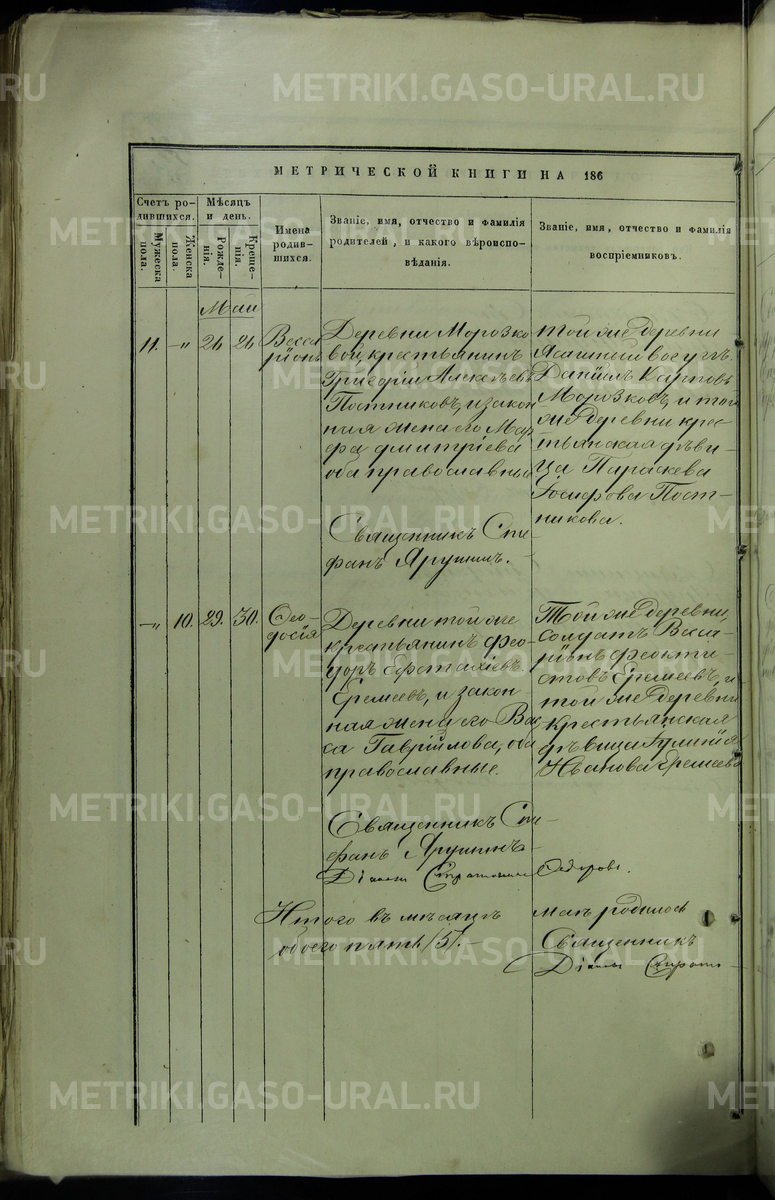 METRIKI.GASO-URAL.RU
МЕТРИЧЕСКОЙ КНИГИ НА 186
Счетъ ро-
дившихся.
Мужеска
пола.
Женска
пола.
Мѣсяцъ
и день.
Рожде-
нія.
Креще-
нія.
Имена
родив-
шихся.
Званіе, имя, отчество и фамилія
родителей, и какого вѣроиспо-
вѣданія.
Званіе, имя, отчество и фамилія
воспріемниковъ.
Маи
11. -„ 26 26
Висса
ріонъ
Деревни Морозко
вой, крестьянинъ
Григорій Алексѣевъ
Постниковъ, и закон
ная жена его Мар
фа Дмитріева
оба православные
Священникъ Сте
фанъ Ярушинъ.
той же деревни
Данiилъ Карповъ
Морозковъ, и той
же деревни крес-
тьянская дѣви-
ца Параскева
Іосифова Пост-
никова.
-„ 10. 29. 30.
Ѳео-
досія
Деревни той же
крестьянинъ Ѳео-
доръ Евстахіевъ
Еремеевъ, и закон
ная жена его Вас
са Гаврiилова, оба
православные.
Священникъ Сте-
фанъ Ярушинъ
Дiаконъ
Той же деревни,
солдатъ Висса-
ріонъ Ѳеокти-
стовъ Еремеевъ, и
той же деревни
крестьянская
дѣвица Іулинія
Иванова Еремеева
Ѳедоровъ.
Итого въ мѣсяцѣ маѣ родилось
обоего пять /5/. - Священникъ
Дiаконъ